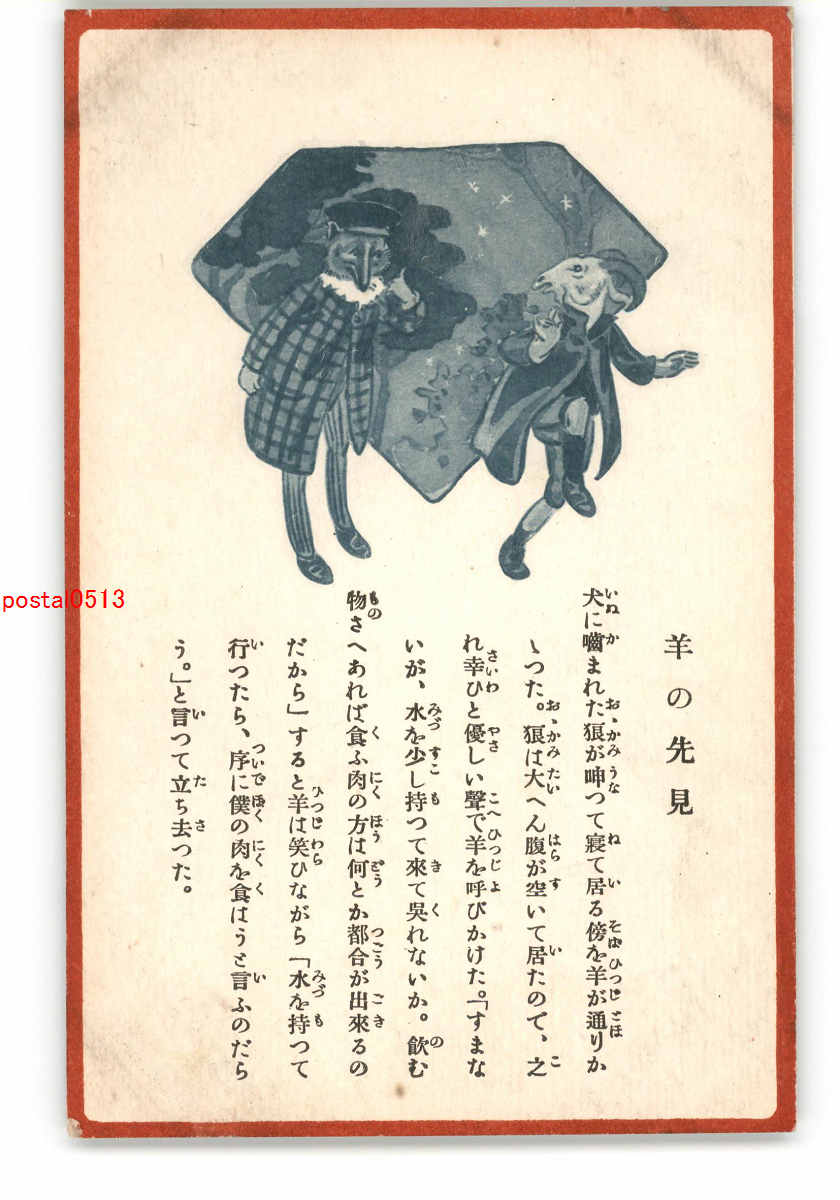 羊の先見
犬に嚙まれた狼が呻つて寢て居る傍を羊が通りか
ゝつた。狼は大へん腹が空いて居たので、之
れ幸ひと優しい聲で羊を呼びかけた。「すまな
いが、水を少し持つて來て吳れないか。飮む
物さへあれば食ふ肉の方は何とか都合が出來るの
だから」すると羊は笑ひながら「水を持つて
行つたら、序に僕の肉を食はうと言ふのだら
う。」と言つて立ち去つた。
postal0513